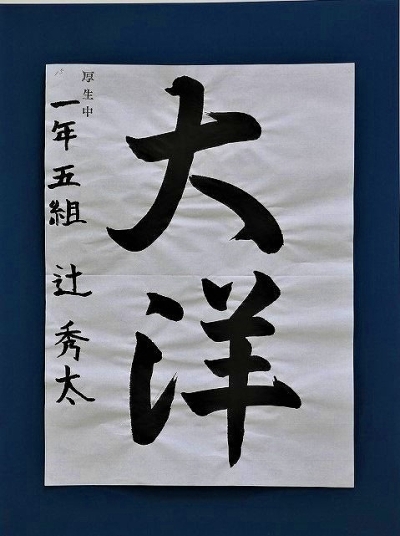 大洋
厚生中
一年五組 辻秀太